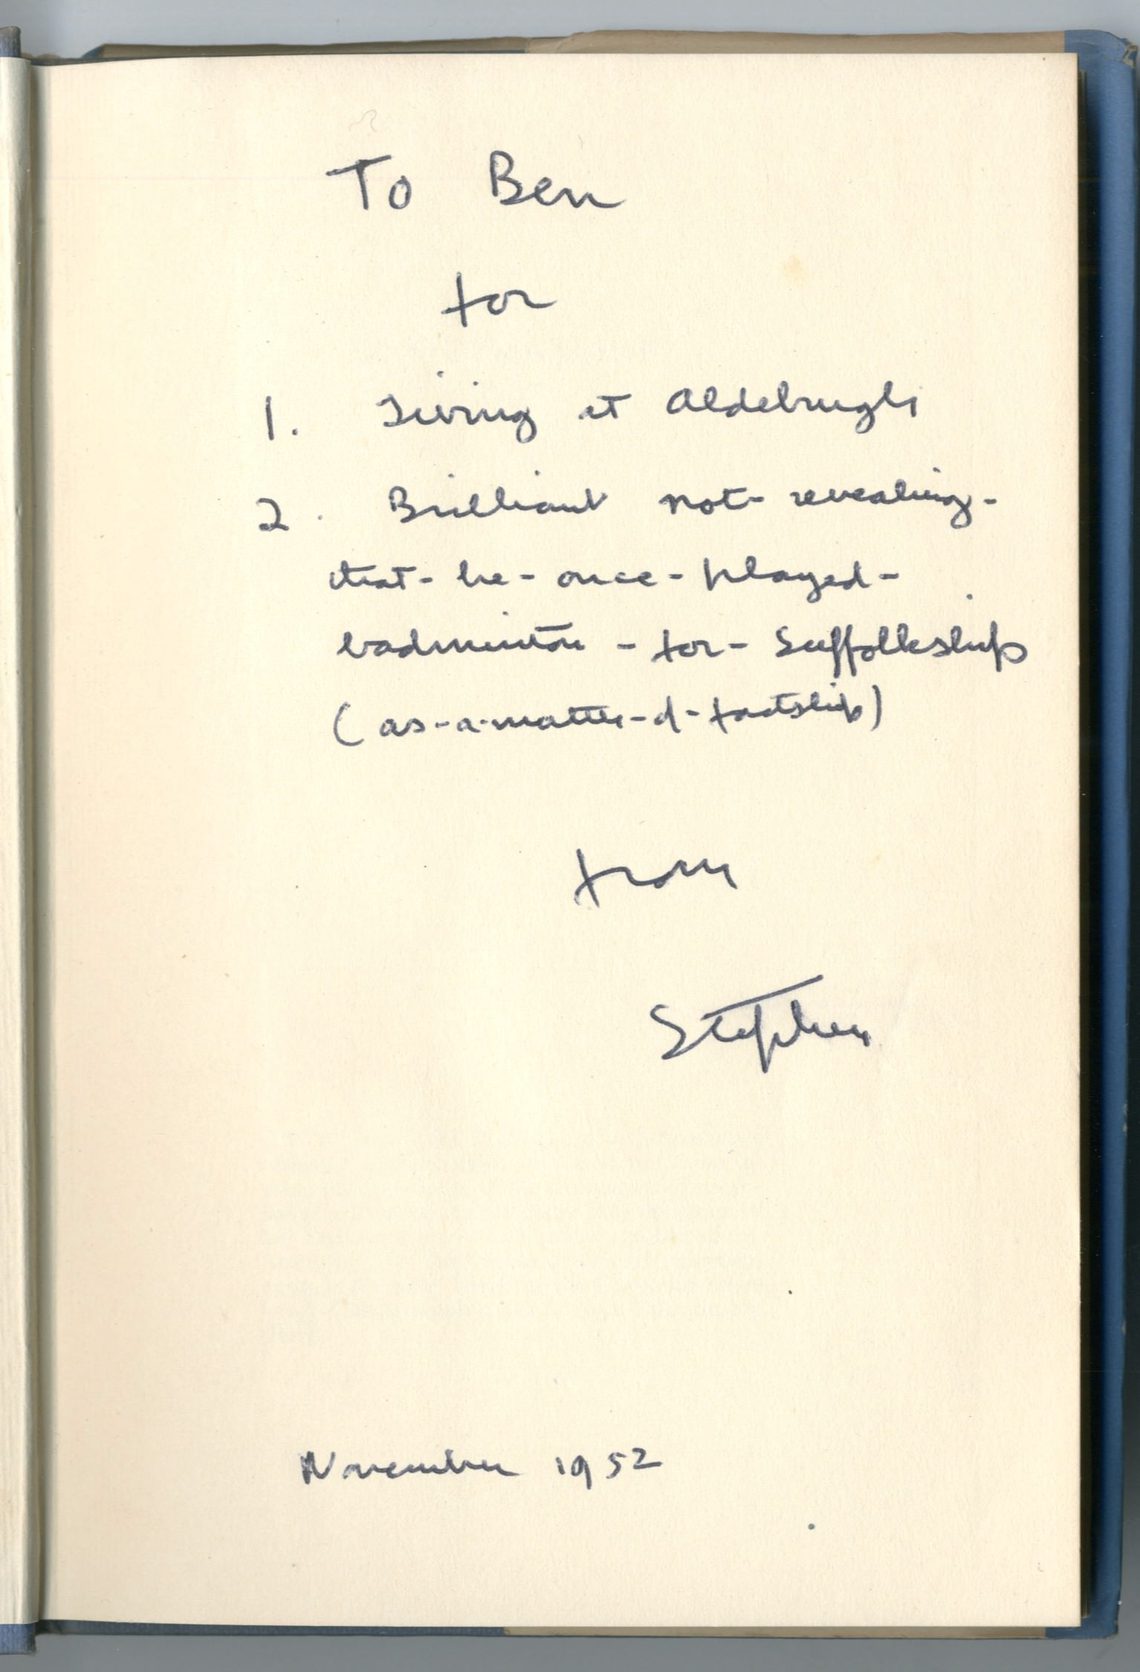 To Ben
for
1. Living at Aldeburgh
2. Brilliant not-revealing-
that-he-once-played-
badminton-for-Suffolkship
(as-a-matter-of-factship)
from
Stephen
November 1952